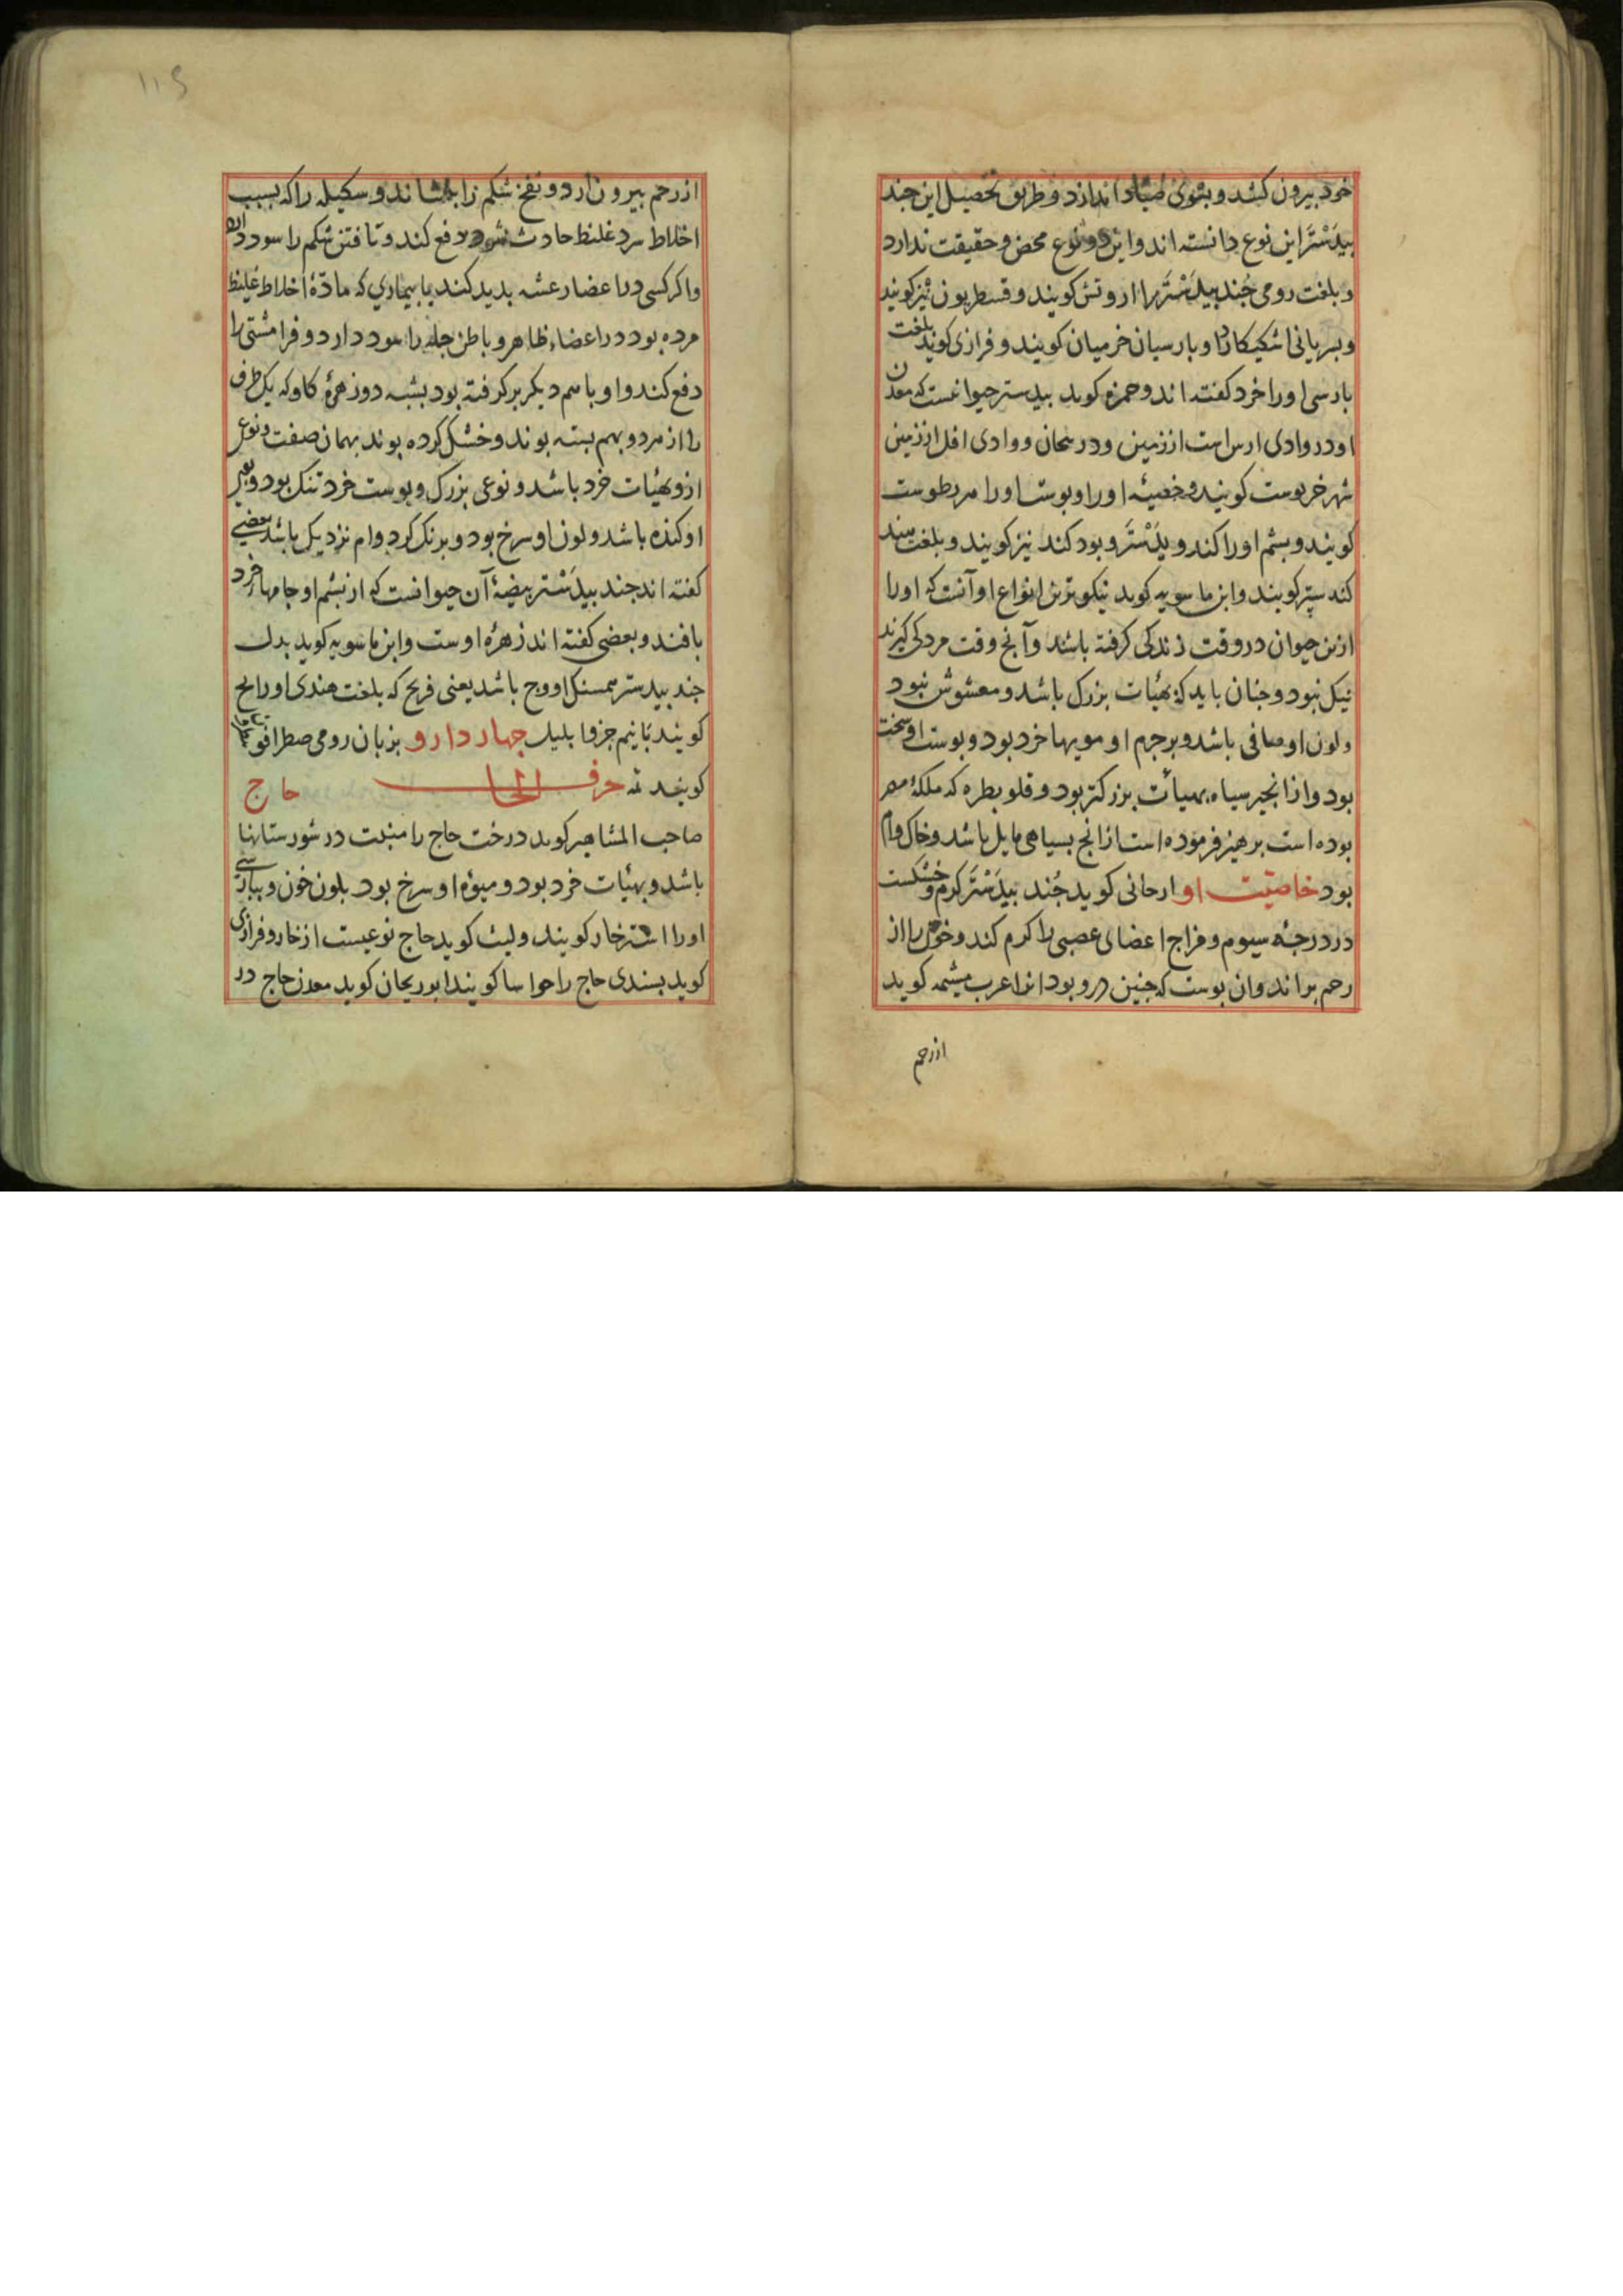 خود بیرون کشد و بسوی صیاد اندازد و طریق تحصیل این جند
بیدَسْتَر این نوع دانسته اند و این دو نوع محض و حقیقت ندارد
و بلغت رومی جُند بیدَسْتَر را اروتش کویند و قسطریون نیز کویند
و بسریانی اشکیکارا و بارسیان خرمیان کویند و فرازی کوید بلغت
بارسی اورا خرد کفته اند و حمزه کوید بیدستر حیوانیست که معدن
او در وادی ارس است از زمین و در وادی از زمین
شهر خربوست کویند و خصیه اورا و بوست اورا
کویند و بشم اورا کند و بیدَسْتَر و بود کند نیز کویند و بلغت سند
کند ستر کویند و ابن ماسویه کوید نیکوترین انواع او آنست که اورا
ازین حیوان در وقت زندکی کرفته باشد و آنچ وقت مردکی کیرند
نیک نبود و جنان باید که بهیات بزرک باشد و مغشوش نبود
و لون او صافی باشد و بر جرم او مویها خرد بود و بوست او سخت
بود و از انجیر سیاه بهیأت بزرکتر بود و قلوبطره که ملکهٔ مصر
بوده است برهیز فرموده است ازانچ بسیاهی مایل باشد و خاک وام
بود خاصیّت او ارجانی کوید جُند بیدَسْتَر کرم و خشکست
در درجهٔ سیوم و مزاج اعضای عصبی را کرم کند و خون را از
رحم براند و ان بوست که جنین درو بود انرا عرب میشمه کوید
از رحم
از رحم بیرون ارد و نفخ شکم را بنشاند و سکیله را که بسبب
اخلاط سرد غلیظ حادث شود دفع کند و تافتن شکم را سود دارد
و اکر کسی در اعضا رعشه بدید کند یا بیماری که مادّهٔ اخلاط غلیظ
مرده بود در اعضاء ظاهر و باطن جمله را سود دارد و فرامشتی را
دفع کند و او با هم دیکر بر کرفته بود بشبه دو زهرهٔ کاو که یک طرف
را از هر دو بهم بسته بوند و خشک کرده بوند بهمان صفت و نوعی
ازو بهیئات خرد باشد و نوعی بزرک و بوست خرد تنک بود و بوی
او کنده باشد و لون او سرخ بود و برنک کرد وام نزدیک باشد بعضی
کفته اند جند بیدَسْتر بیضهٔ آن حیوانست که از بشم او جامها خرد
بافند و بعضی کفته اند زهره اوست و ابن ماسویه کوید بدل
جند بیدستر همسنک او وج باشد یعنی فریج که بلغت هندی اورا بح
کویند با نیم جزفا بلیل جهار دارو بزبان رومی صطرافو
کویند تمه حرف الحا حاج
صاحب المشاهیر کوید درخت حاج را منبت در شورستانها
باشد و بهیئات خرد بود و میوهٔ او سرخ بود بلون خون و ببارسی
اورا اشترخار کویند و لیث کوید حاج نوعیست از خار و فرازی
کوید بسندی حاج را جواسا کویند ابوریحان کوید معدن حاج در
۱۱۶